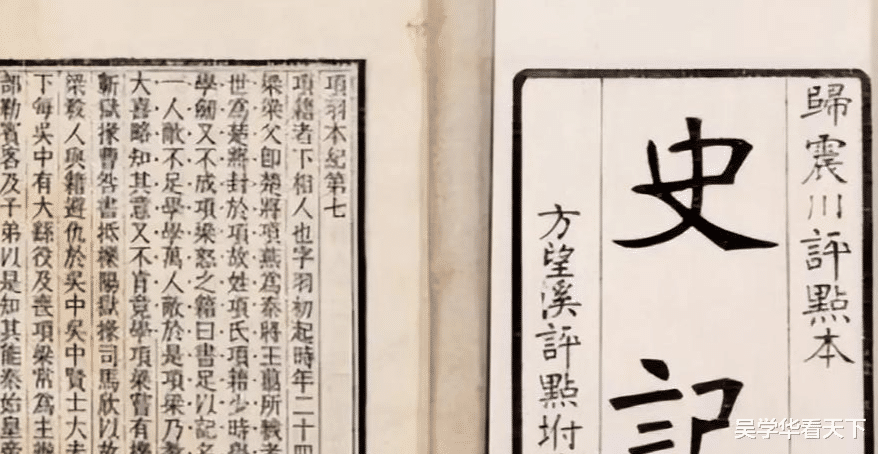 歸震川評點本
史記
方望溪評點坿
項羽本紀第七
項籍者下相人也字羽初起時年二十四
梁梁父即楚將項燕爲秦將王翦所戮者
世爲楚將封於項故姓項氏項籍少時學
學劒又不成項梁怒之籍曰書足以記名
一人敵不足學學萬人敵於是項梁乃教
大喜略知其意又不肯竟學項梁嘗有櫟
蘄獄掾曹咎書抵櫟陽獄掾司馬欣以故
梁殺人與籍避仇於吳中吳中賢士大夫
下每吳中有大繇役及喪項梁常爲主辦
部勒賓客及子弟以是知其能秦始皇帝
吴学华看天下